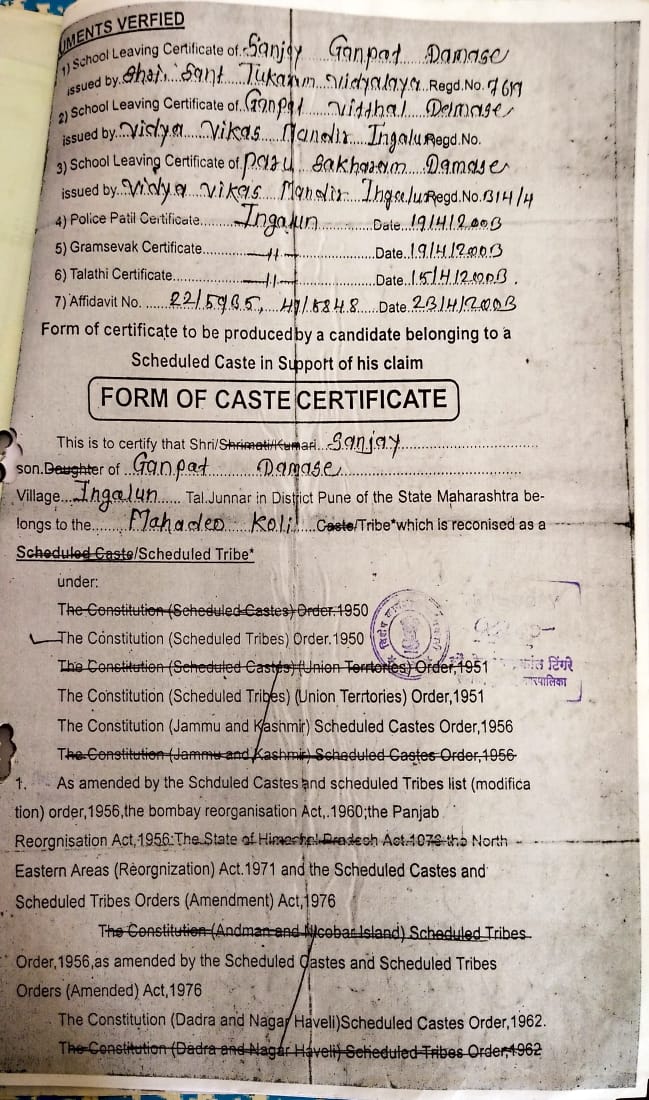 UMENTS VERFIED
1) School Leaving Certificate of. Sanjay Ganpat Damase
issued by. Shri. Sant Tukaram vidyalaya Regd.No. 7617
2) School Leaving Certificate of. Ganpat vitthal Damase
issued by. Vidya Vikas Mandir Ingalun Regd.No.
3) School Leaving Certificate of Pazu Sakharam Damase
issued by. Vidya vikas Mandir Ingalun Regd.No. B14/4
4) Police Patil Certificate....... Ingalun Date. 19/4/2003
5) Gramsevak Certificate........ -11- Date. 19/4/2003
6) Talathi Certificate........ -11- Date. 15/4/2003.
7) Affidavit No. ..... 22/5935, 49/5848 Date 23/4/2003
Form of certificate to be produced by a candidate belonging to a
Scheduled Caste in Support of his claim
FORM OF CASTE CERTIFICATE
This is to certify that Shri/Shrimati/Kumari. Sanjay
son.Daughter of .. Ganpat Damase
Village... Ingalun ..... Tal.Junnar in District Pune of the State Maharashtra be-
longs to the....... Mahadeo Koli ....Caste/Tribe*which is reconised as a
Scheduled Caste/Scheduled Tribe*
under:
The Constitution (Scheduled Castes) Order.1950
The Constitution (Scheduled Tribes) Order.1950
The Constitution (Scheduled Castes) (Union Terrtories) Order,1951
टिंगरे
The Constitution (Scheduled Tribes) (Union Terrtories) Order,1951
The Constitution (Jammu and Kashmir) Scheduled Castes Order,1956
The Constitution (Jammu and Kashmir) Scheduled Castes Order,1956
1. As amended by the Schduled Castes and scheduled Tribes list (modifica
tion) order,1956,the bombay reorganisation Act,.1960;the Panjab
Reorgnisation Act,1956:The State of Himachal Pradesh Act.1076 the North
Eastern Areas (Reorgnization) Act.1971 and the Scheduled Castes and
Scheduled Tribes Orders (Amendment) Act,1976
The Constitution (Andman and Nicobar Island) Scheduled Tribes
Order,1956,as amended by the Scheduled Castes and Scheduled Tribes
Orders (Amended) Act,1976
The Constitution (Dadra and Nagar Haveli)Scheduled Castes Order,1962.
The Constitution (Dadra and Nagar Haveli) Scheduled Tribes Order,1962